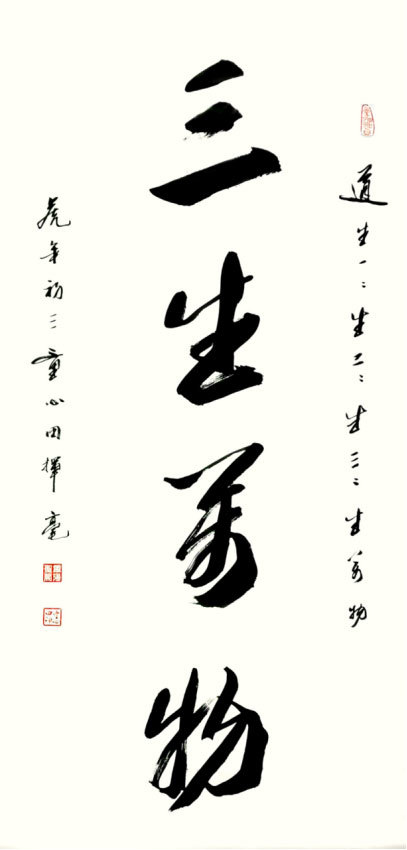 道生一〻生二〻生三〻生萬物
三生萬物
虎年初三童心田揮毫